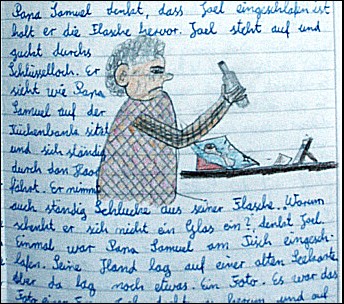 Papa Samuel denkt, dass Joel eingeschlafen ist
holt er die Flasche hervor. Joel steht auf und
guckt durchs
Schlüsselloch. Er
sieht wie Papa
Samuel auf der
Küchenbank sitzt
und sich ständig
durch das Haar
fährt. Er nimmt
auch ständig Schlucke aus seiner Flasche. Warum
schenkt er sich nicht ein Glas ein?, denkt Joel.
Einmal war Papa Samuel am Tisch eingesch-
lafen. Seine Hand lag auf einer alten Seekarte
aber da lag noch etwas. Ein Foto. Es war das
Foto einer